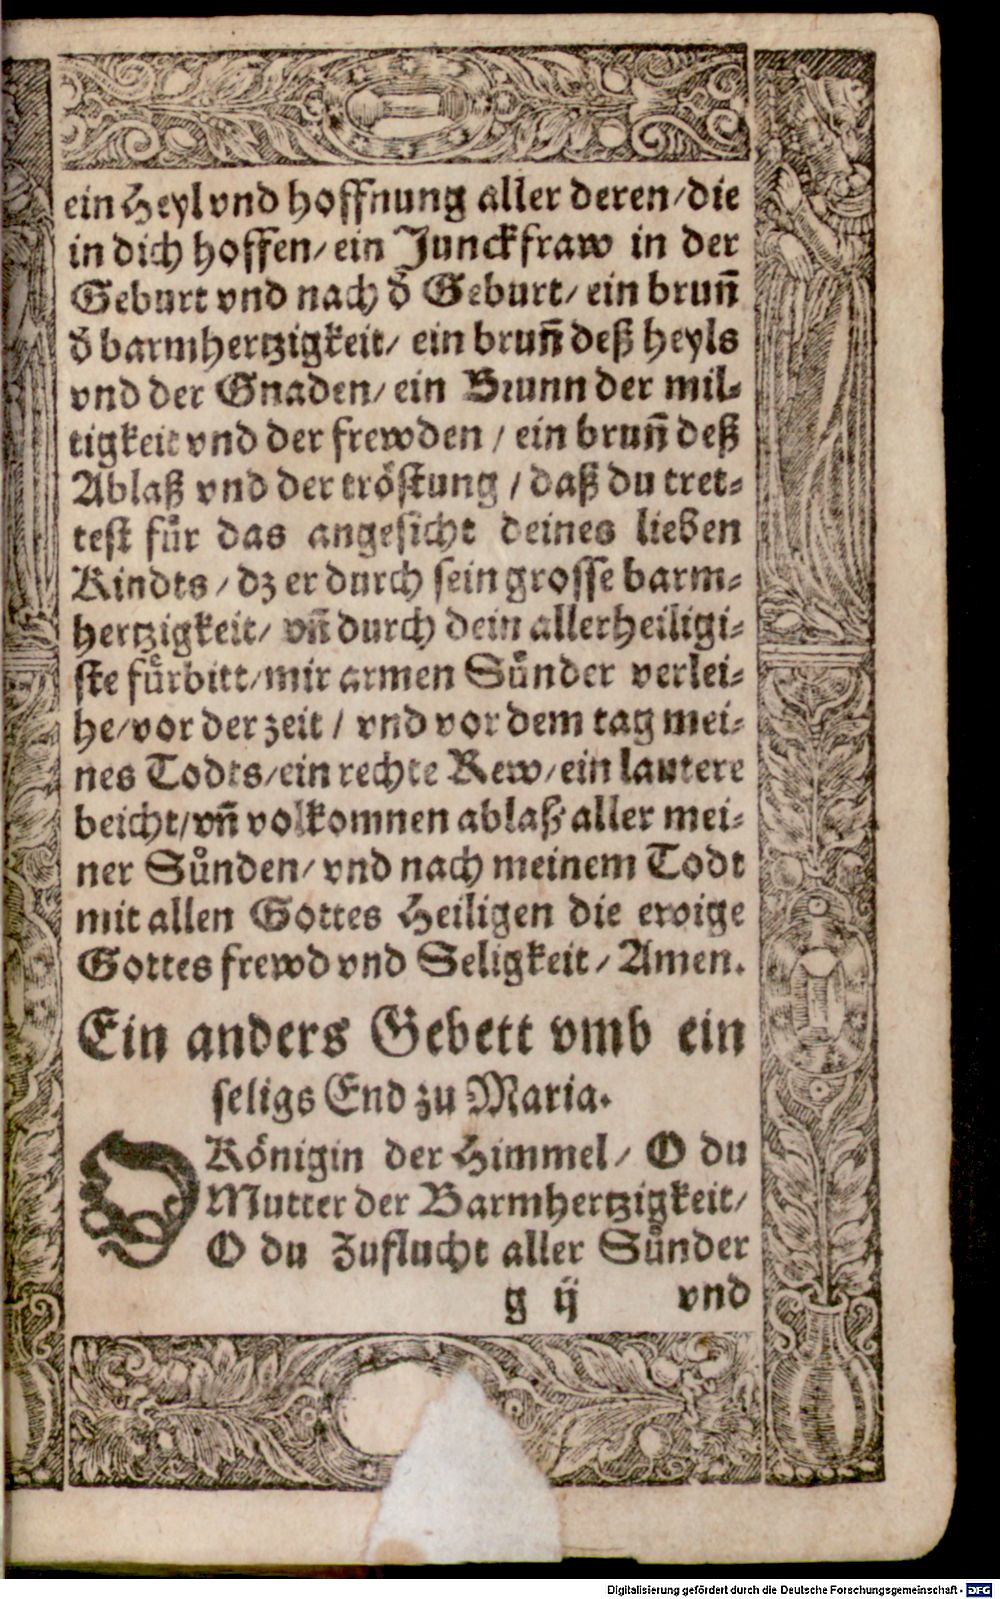 ein Heyl vnd hoffnung aller deren / die
in dich hoffen / ein Junckfraw in der
Geburt vnd nach d̕ Geburt / ein brun̄
d̕ barmhertzigkeit / ein brun̄ deß heyls
vnd der Gnaden / ein Brunn der mil-
tigkeit vnd der frewden / ein brun̄ deß
Ablaß vnd der tröstung / daß du tret-
test fuͤr das angesicht deines lieben
Kindts / dz er durch sein grosse barm-
hertzigkeit / vn̄ durch dein allerheiligi-
ste fuͤrbitt / mir armen Suͤnder verlei-
he / vor der zeit / vnd vor dem tag mei-
nes Todts / ein rechte Rew / ein lautere
beicht / vn̄ volkomnen ablaß aller mei-
ner Suͤnden / vnd nach meinem Todt
mit allen Gottes Heiligen die ewige
Gottes frewd vnd Seligkeit / Amen.
Ein anders Gebett vmb ein
seligs End zu Maria.
O Königin der Himmel / O du
Mutter der Barmhertzigkeit /
O du Zuflucht aller Suͤnder
g ij vnd
Digitalisierung gefördert durch die Deutsche Forschungsgemeinschaft - DFG